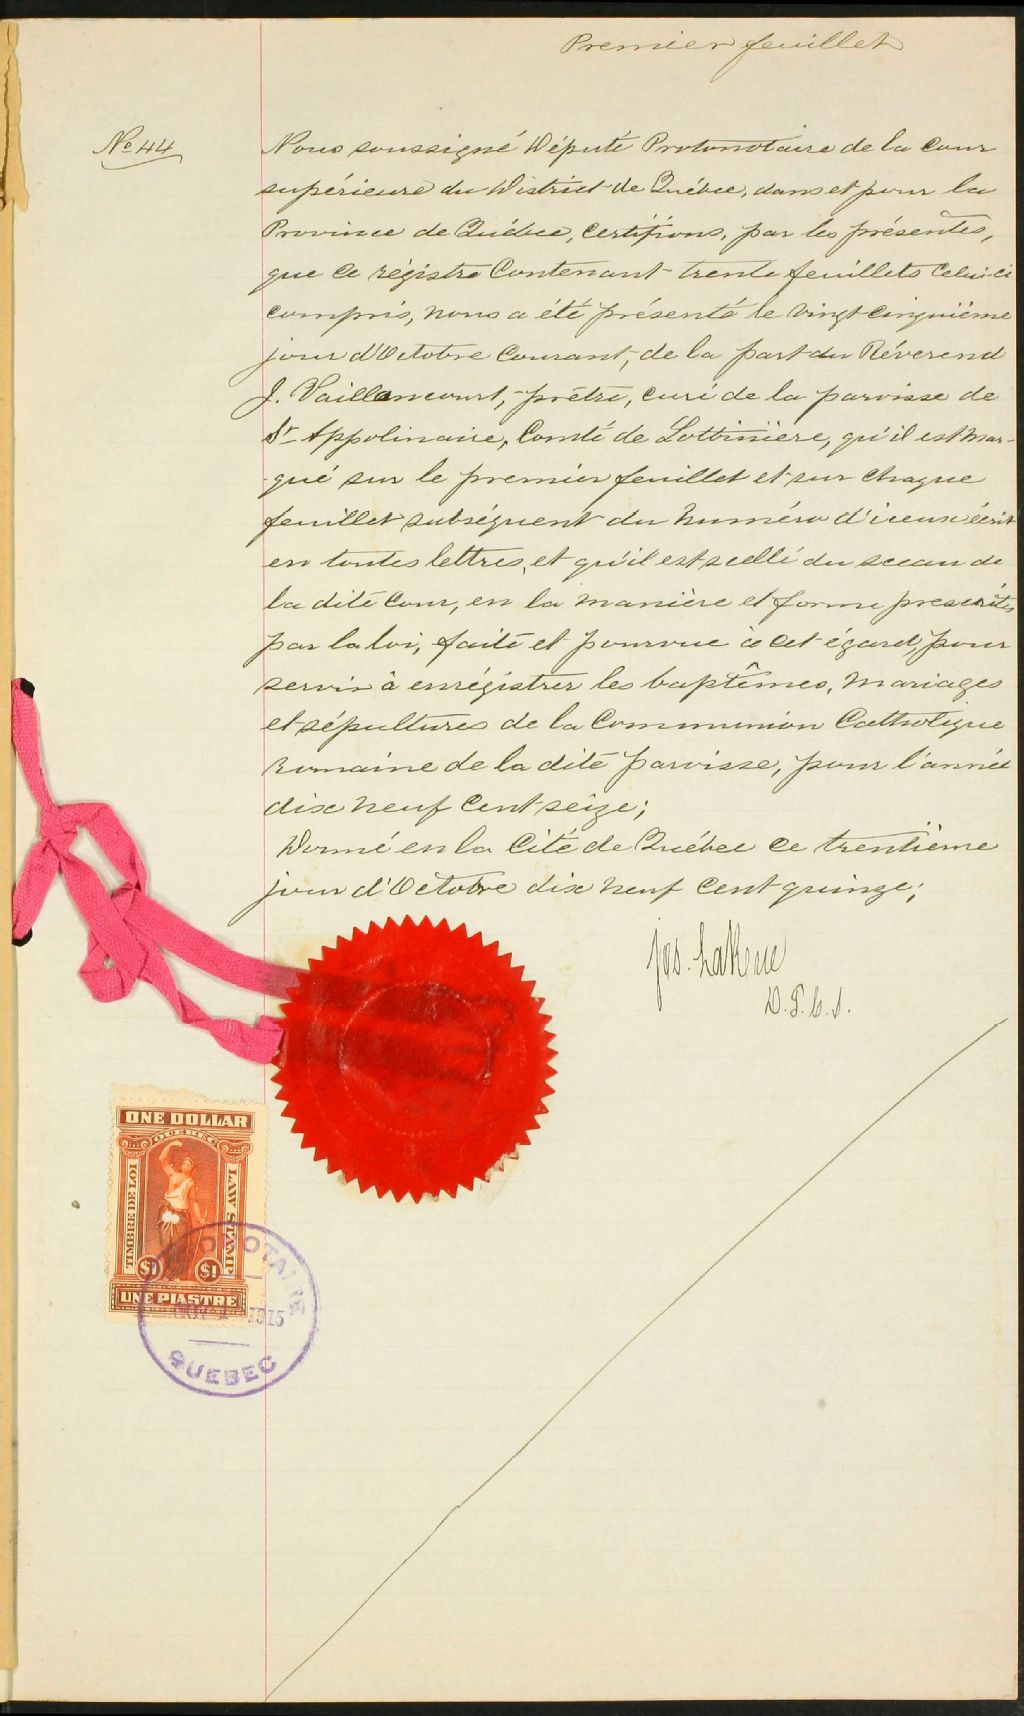 Premier feuillet
No 44
Nous soussigné Député Protonotaire de la Cour
supérieure du District de Québec, dans et pour la
Province de Québec, Certifions, par les présentes,
que ce régistre Contenant trente feuillets Celui-ci
compris, nous a été présenté le vingt cinquième
jour d'Octobre Courant, de la part du Révérend
J. Vaillancourt, prêtre, curé de la paroisse de
St Appolinaire, Comté de Lotbinière, qu'il est mar-
qué sur le premier feuillet et sur chaque
feuillet subséquent du numéro d'iceux écrit
en toutes lettres, et qu'il est scellé du sceau de
la dite Cour, en la manière et forme prescrites
par la loi, faite et pourvue à cet égard, pour
servir à enrégistrer les baptêmes, mariages
et sépultures de la Communion Catholique
romaine de la dite paroisse, pour l'année
dix neuf Cent seize;
Donné en la Cité de Québec ce trentième
jour d'Octobre dix neuf Cent quinze;
Jos. LaRue
D. P. C. S.
ONE DOLLAR
QUEBEC
TIMBRE DE LOI
LAW STAMP
$1 $1
UNE PIASTRE
PROTONOTAIRE
NOV 1915
QUEBEC